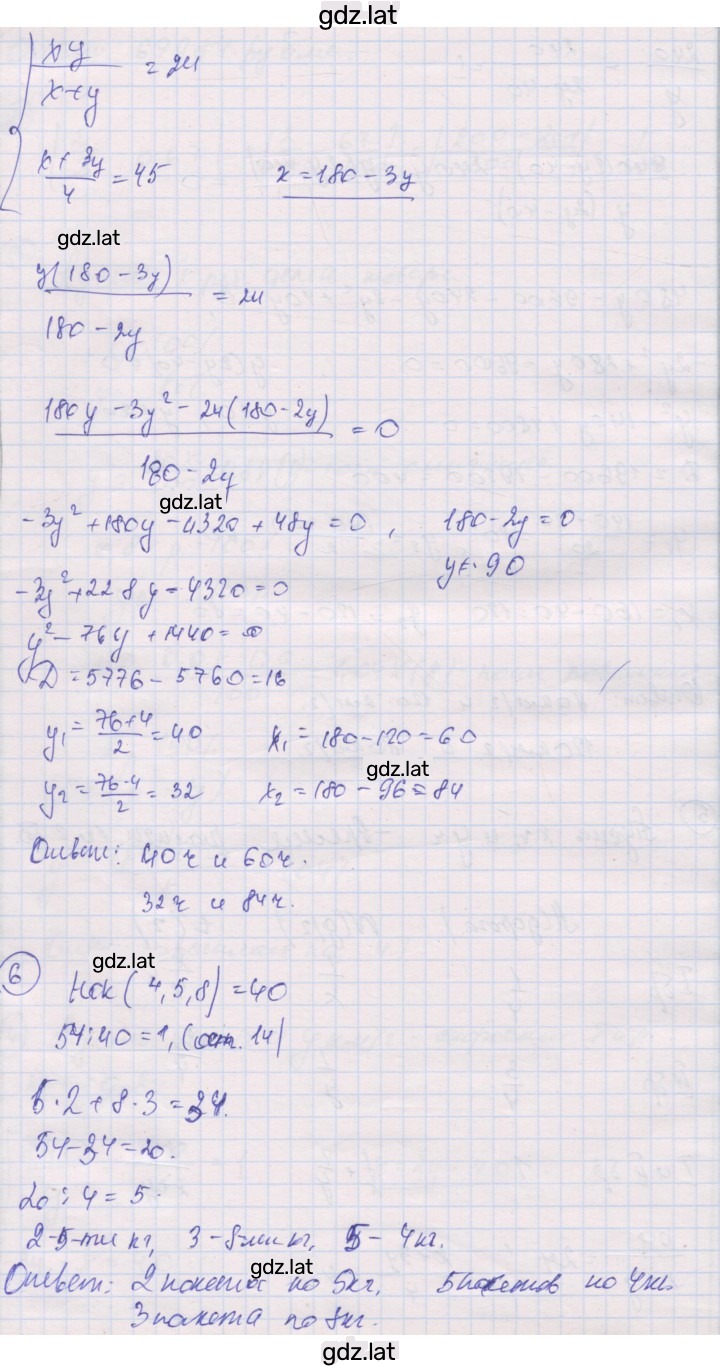 gdz.lat
xy / x+y = 24
x + 3y / 4 = 45 x = 180 - 3y
gdz.lat
y(180 - 3y) / 180 - 2y = 24
180y - 3y² - 24(180 - 2y) / 180 - 2y = 0
gdz.lat
-3y² + 180y - 4320 + 48y = 0, 180 - 2y = 0
y ≠ 90
-3y² + 228y - 4320 = 0
y² - 76y + 1440 = 0
D = 5776 - 5760 = 16
y₁ = 76+4 / 2 = 40 x₁ = 180 - 120 = 60
gdz.lat
y₂ = 76-4 / 2 = 32 x₂ = 180 - 96 = 84
Ответ: 40 ч и 60 ч.
32 ч и 84 ч.
gdz.lat
6 НОК (4, 5, 8) = 40
54 : 40 = 1, (ост. 14)
5 · 2 + 8 · 3 = 34.
54 - 34 = 20.
20 : 4 = 5.
2 - 5-ти кг, 3 - 8-ми кг, 5 - 4 кг.
gdz.lat
Ответ: 2 пакета по 5 кг, 5 пакетов по 4 кг.
3 пакета по 8 кг.
gdz.lat